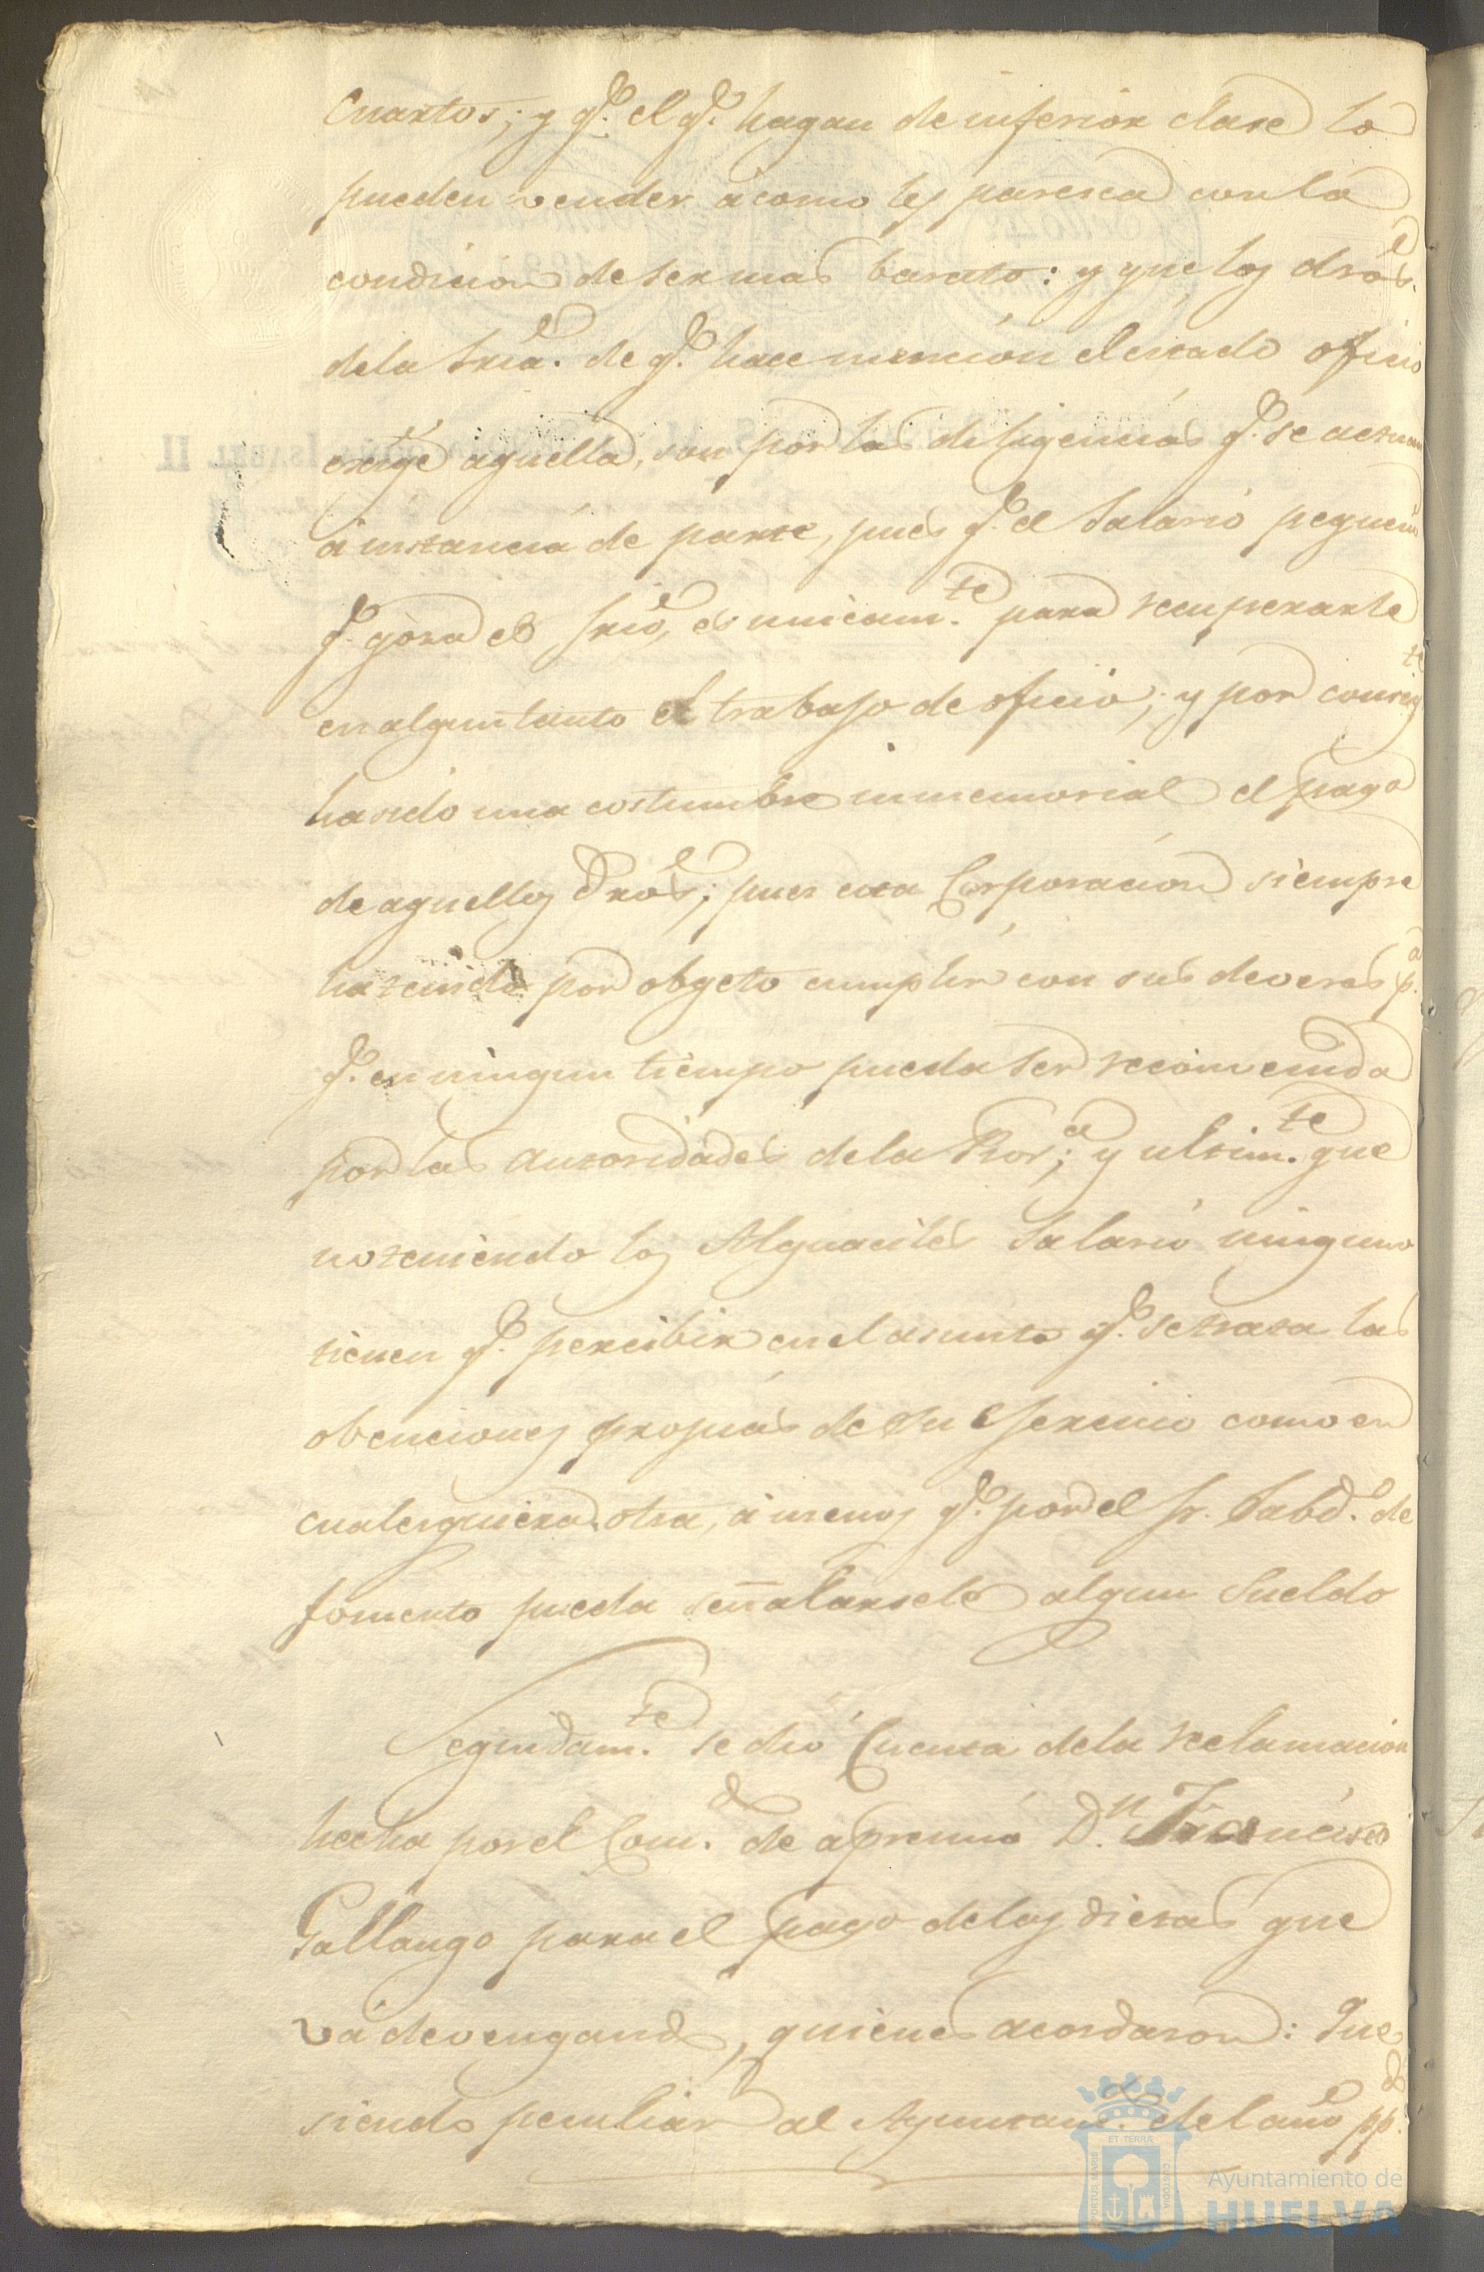 Cuartos; y q.e el q.e hagan de inferior clase lo
pueden vender á como les paresca con la
condicion de ser mas barato: y que los dros.
de la Sria. de q.e hace mencion el citado oficio
exige aquella, son por las diligencias q.e se actuan
á instancia de parte, pues q.e el Salario pequeño
q.e gosa el Srio, es unicam.te para recuperarle
en algun tanto el trabajo de oficio; y por consig.te
ha sido una costumbre inmemorial el pago
de aquellos dros; pues esta Corporacion siempre
ha tenido por obgeto cumplir con sus deveres p.a
q.e en ningun tiempo pueda ser reconvenida
por las autoridades de la Prov.a; y ultim.te que
no teniendo los Alguaciles Salario ninguno
tienen q.e percibir en el asunto q.e se trata las
obenciones propias de su egercicio como en
cualesquiera otra, á menos q.e por el Sr. Sabd.o de
fomento pueda señalarsele algun Sueldo
Seguidam.te se dió Cuenta de la reclamacion
hecha por el Com.do de apremio D.n Francisco
Gallango para el pago de las dietas que
vá devengando, quienes acordaron: Que
siendo peculiar al Ayuntam.to del año pp.do
ISABEL II
ET TERRÆ
PORTUS MARIS
CUSTODIA
Ayuntamiento de
HUELVA